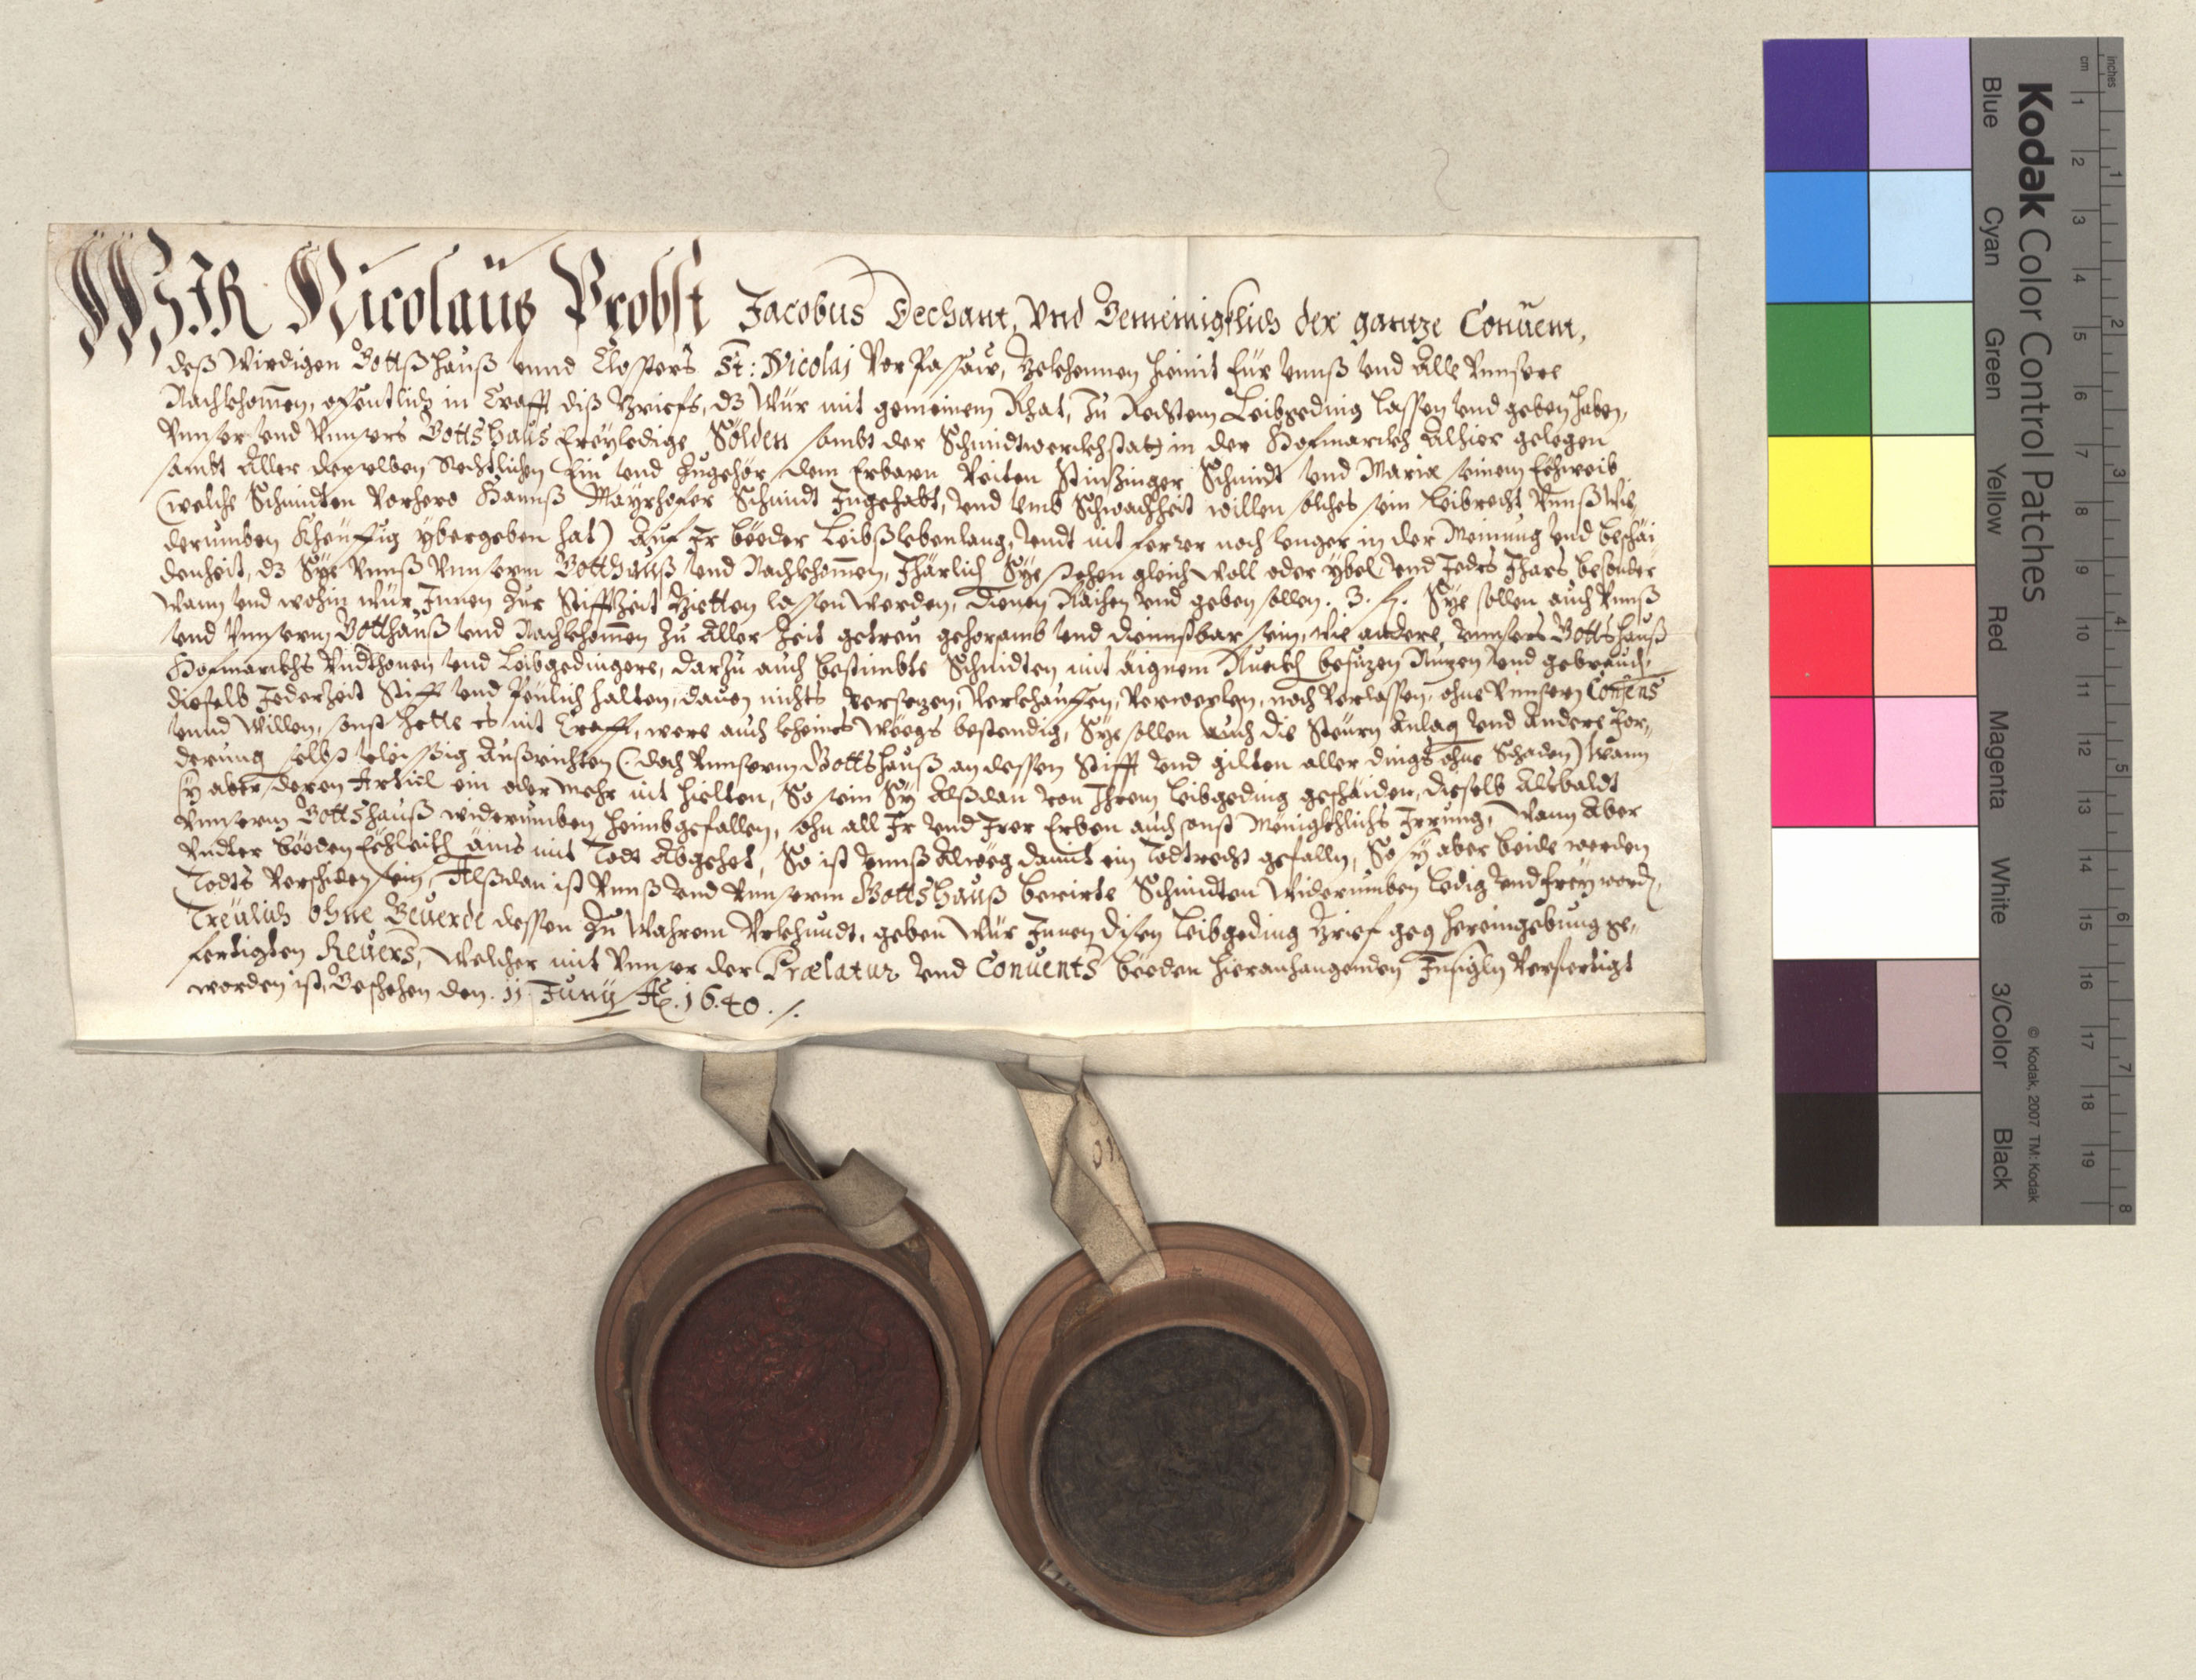 WIR Nicolaus Probst Jacobus Dechant, Vnd Gemeinigklich der gantze Conuent,
deß Wirdigen Gottßhauß vnnd Closters St: Nicolai Vor Passaw, Bekhennen hiemit für vnnß vnd Alle Vnnsere
Nachkhomen, offentlich in Crafft diß Briefs, dz Wür mit gemeinem Rhat, Zu Rechtem Leibgeding lassen vnd geben haben,
Vnnser vnd Vnnsers Gottshaus freyledige Sölden sambt der Schmidtwerckhstat in der Hofmarckh Alhier gelegen
sambt Aller derselben Rechtlichen Ein vnd Zugehör, dem Erbarn Veiten Stinzinger Schmidt vnd Maria seinem Eheweib
(welche Schmidten Vorhero Hannß Mayrhofer Schmidt Ingehabt, vnd vmb Schwachheit willen solches sein leibrecht Vnnß Wi-
derumben Kheuffig ybergeben hat) Auf Ir beeder Leibßlebenlang, vndt nit ferrer noch lenger in der Meinung vnd beschai
denheit, dz Sye Vnnß Vnnserm Gotthauß vnd Nachkhomen, Jhärlich Sye sechen gleich Woll oder ybel vnd Jedes Jhars besonder
Wann vnd wohin wür Innen Zur Stifftzeit bietten lassen werden, dienen Raichen vnd geben sollen. 3. fl. Sye sollen auch Vnnß
vnd Vnnserm Gotthauß vnd Nachkhomen Zu Aller Zeit getreu gehorsamb vnd diennstbar sein, wie andere vnnsers Gottshauß
Hofmarckhs Vndthonen vnd Leibgedingere, darzu auch bestimbte Schmidten mit aignem Ruckh besizen Nuzen vnd gebrauch,
dieselb Jederzeit Stifft vnd Peulich halten, dauon nichts Versezen, Verkhauffen, Verwexlen, noch Verlassen, ohne Vnnsern Consens
vnnd Willen, sonst hette es nit Crafft, were auch kheines Weegs bestendig, Sye sollen auch die Steurn Anlag vnd Andere For-
derung selbst vleissig Außrichten (doch Vnnserm Gottshauß an dessen Stifft vnd gilten aller dings ohne Schaden) Wann
sy aber deren Artickl ein oder mehr nit hielten, So sein Sy Alßdan von Ihrem leibgeding geschaiden, dieselb Alsbaldt
Vnnserm Gottshauß widerumben heimbgefallen, ohn all Ir vnd Irer Erben auch sonst Menigkhlichs Irrung, Wann Aber
Vndter beeden Ehleith ains mit Todt Abgehet, So ist vnnß Alweg damit ein Todtrecht gefalln, So sy aber beide werden
Todts Verschiden sein, Alßdan ist Vnnß vnd Vnnserm Gottshauß berirte Schmidten Widerumben ledig vnd frey word,
Treulich ohne Geuerde dessen Zu Wahrem Vrkhundt, geben Wür Innen disen Leibgeding Brief geg hereingebung ge-
fertigten Reuers, Welcher mit Vnnser der Prælatur vnd Conuents beeden hieranhangenden Insigln Verfertigt
worden ist, Geschehen den. 11 Juny Aõ. 1640.
01
Kodak Color Control Patches
Blue Cyan Green Yellow Red Magenta White 3/Color Black
© Kodak, 2007 TM: Kodak
cm 1 2 3 4 5 6 7 8 9 10 11 12 13 14 15 16 17 18 19
inches 1 2 3 4 5 6 7 8